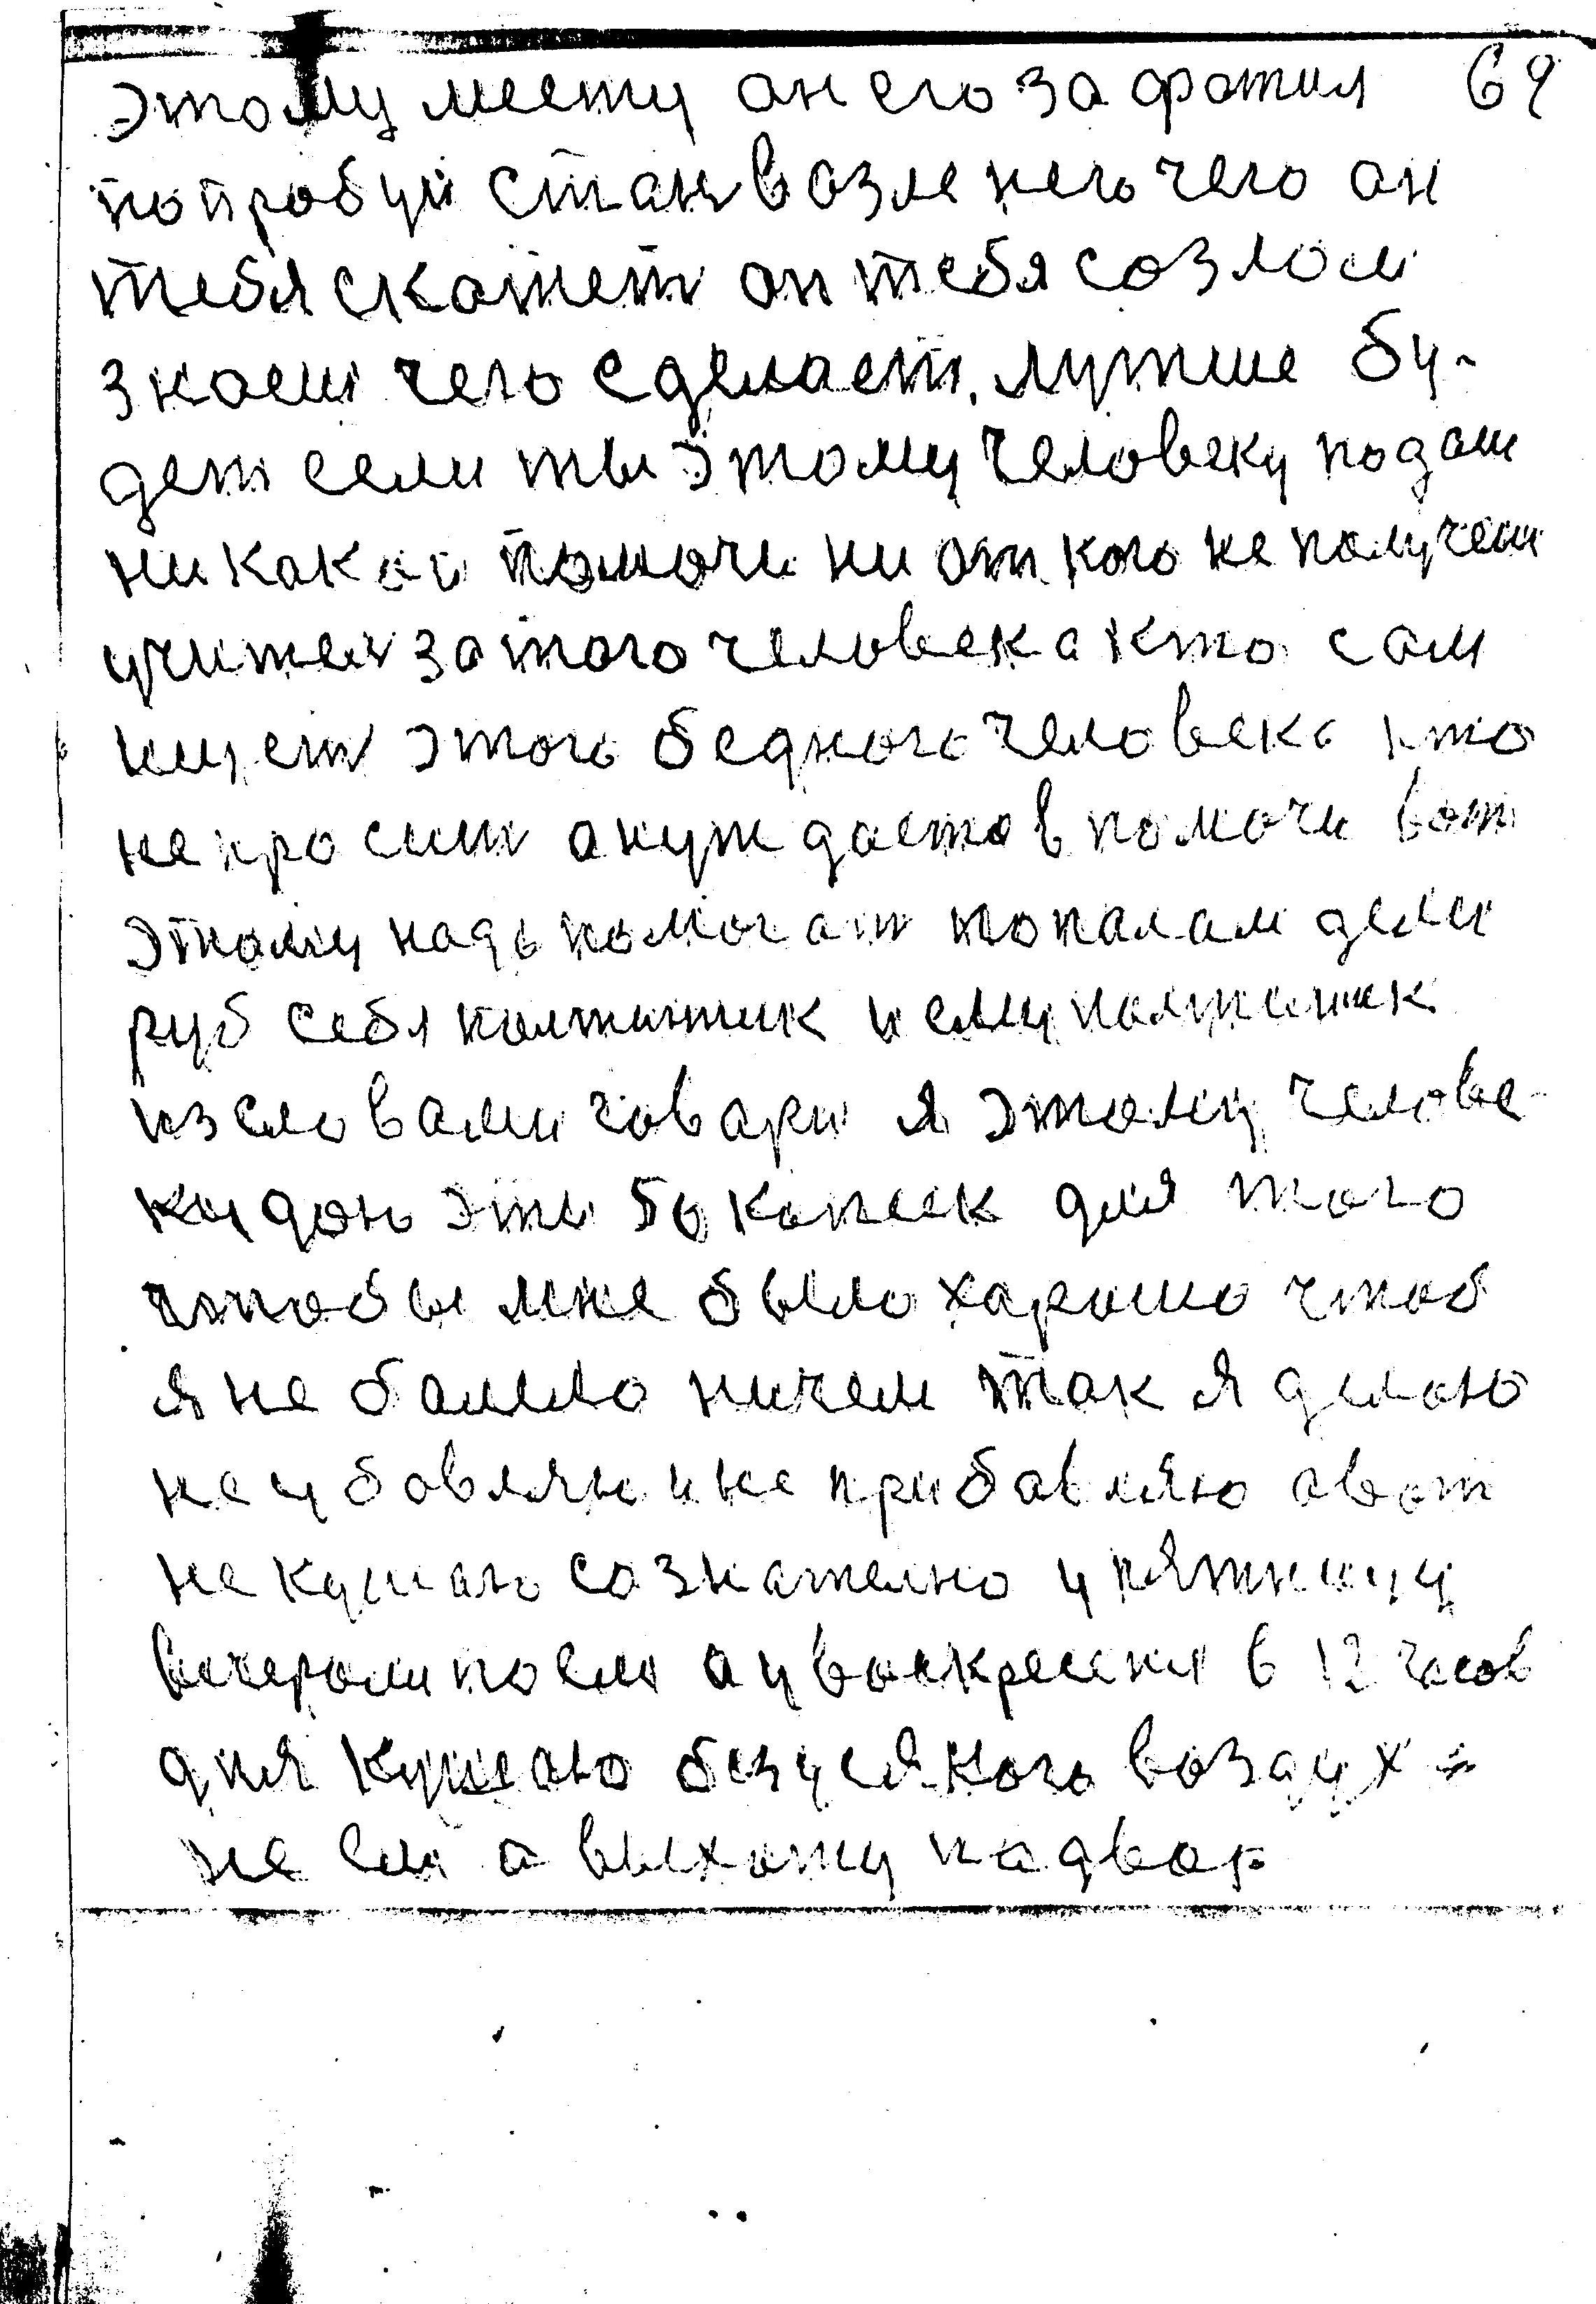 этому месту он его зафотил 69
попробуй стань возле него чего он
тебя скажет он тебя со злом
знаеш чего сделает. лутше бу-
дет если ты этому человеку подаш
никакой помочи ни от кого не получеш
учител за того человека кто сам
ищет этого бедного человека кто
не просит а нуждается в помочи вот
этому надо помогат пополам дели
руб себя полтинник и ему полтинник
из словами говари я этому челове-
ку даю эти 50 копеек для того
чтобы мне было харошо чтоб
я не балело ничем так я делаю
не убовляю и не прибавляю а вот
не кушаю сознателно у пятницу
вечером поел а у воскресеня в 12 часов
дня кушаю без усякого воздуха
не ем а выхожу на двор